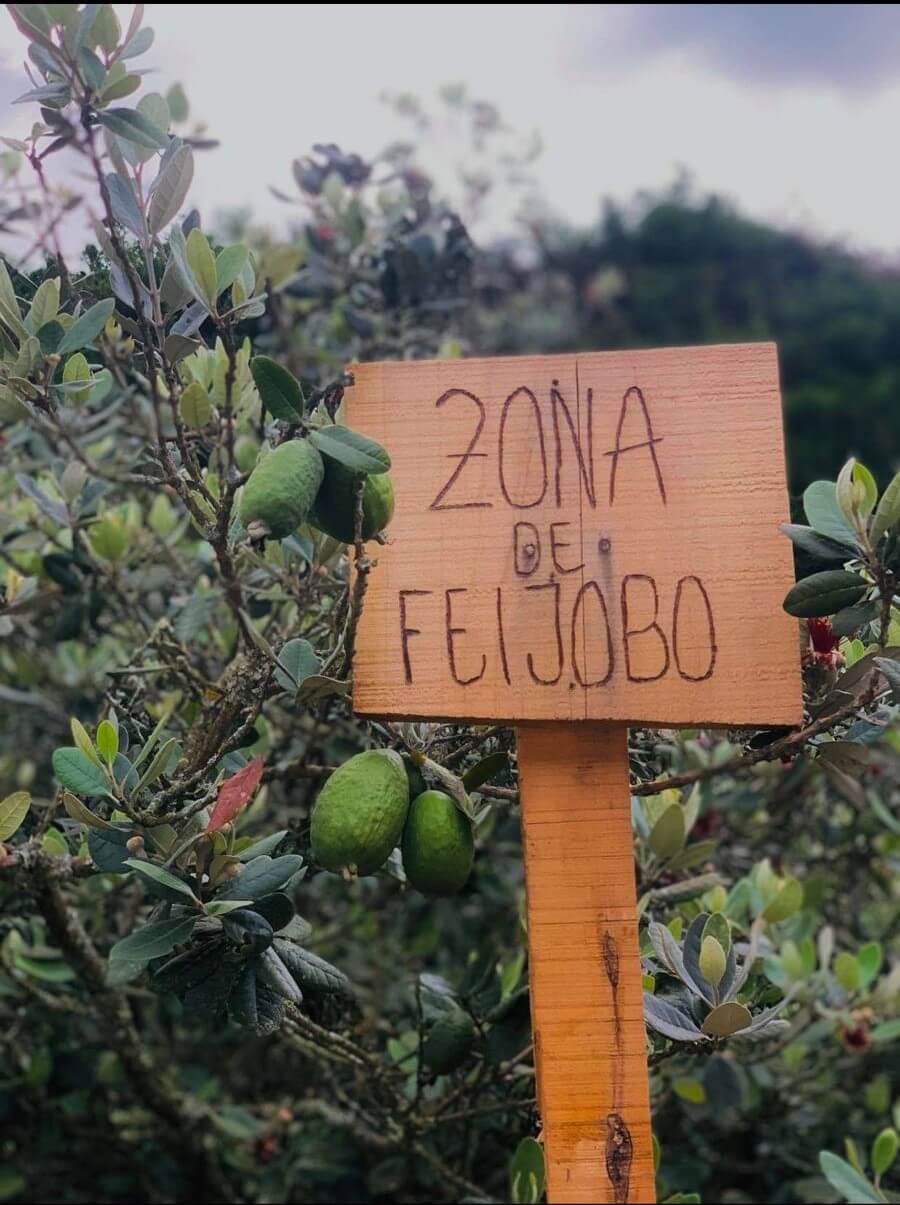 ZONA
DE
FEIJOBO